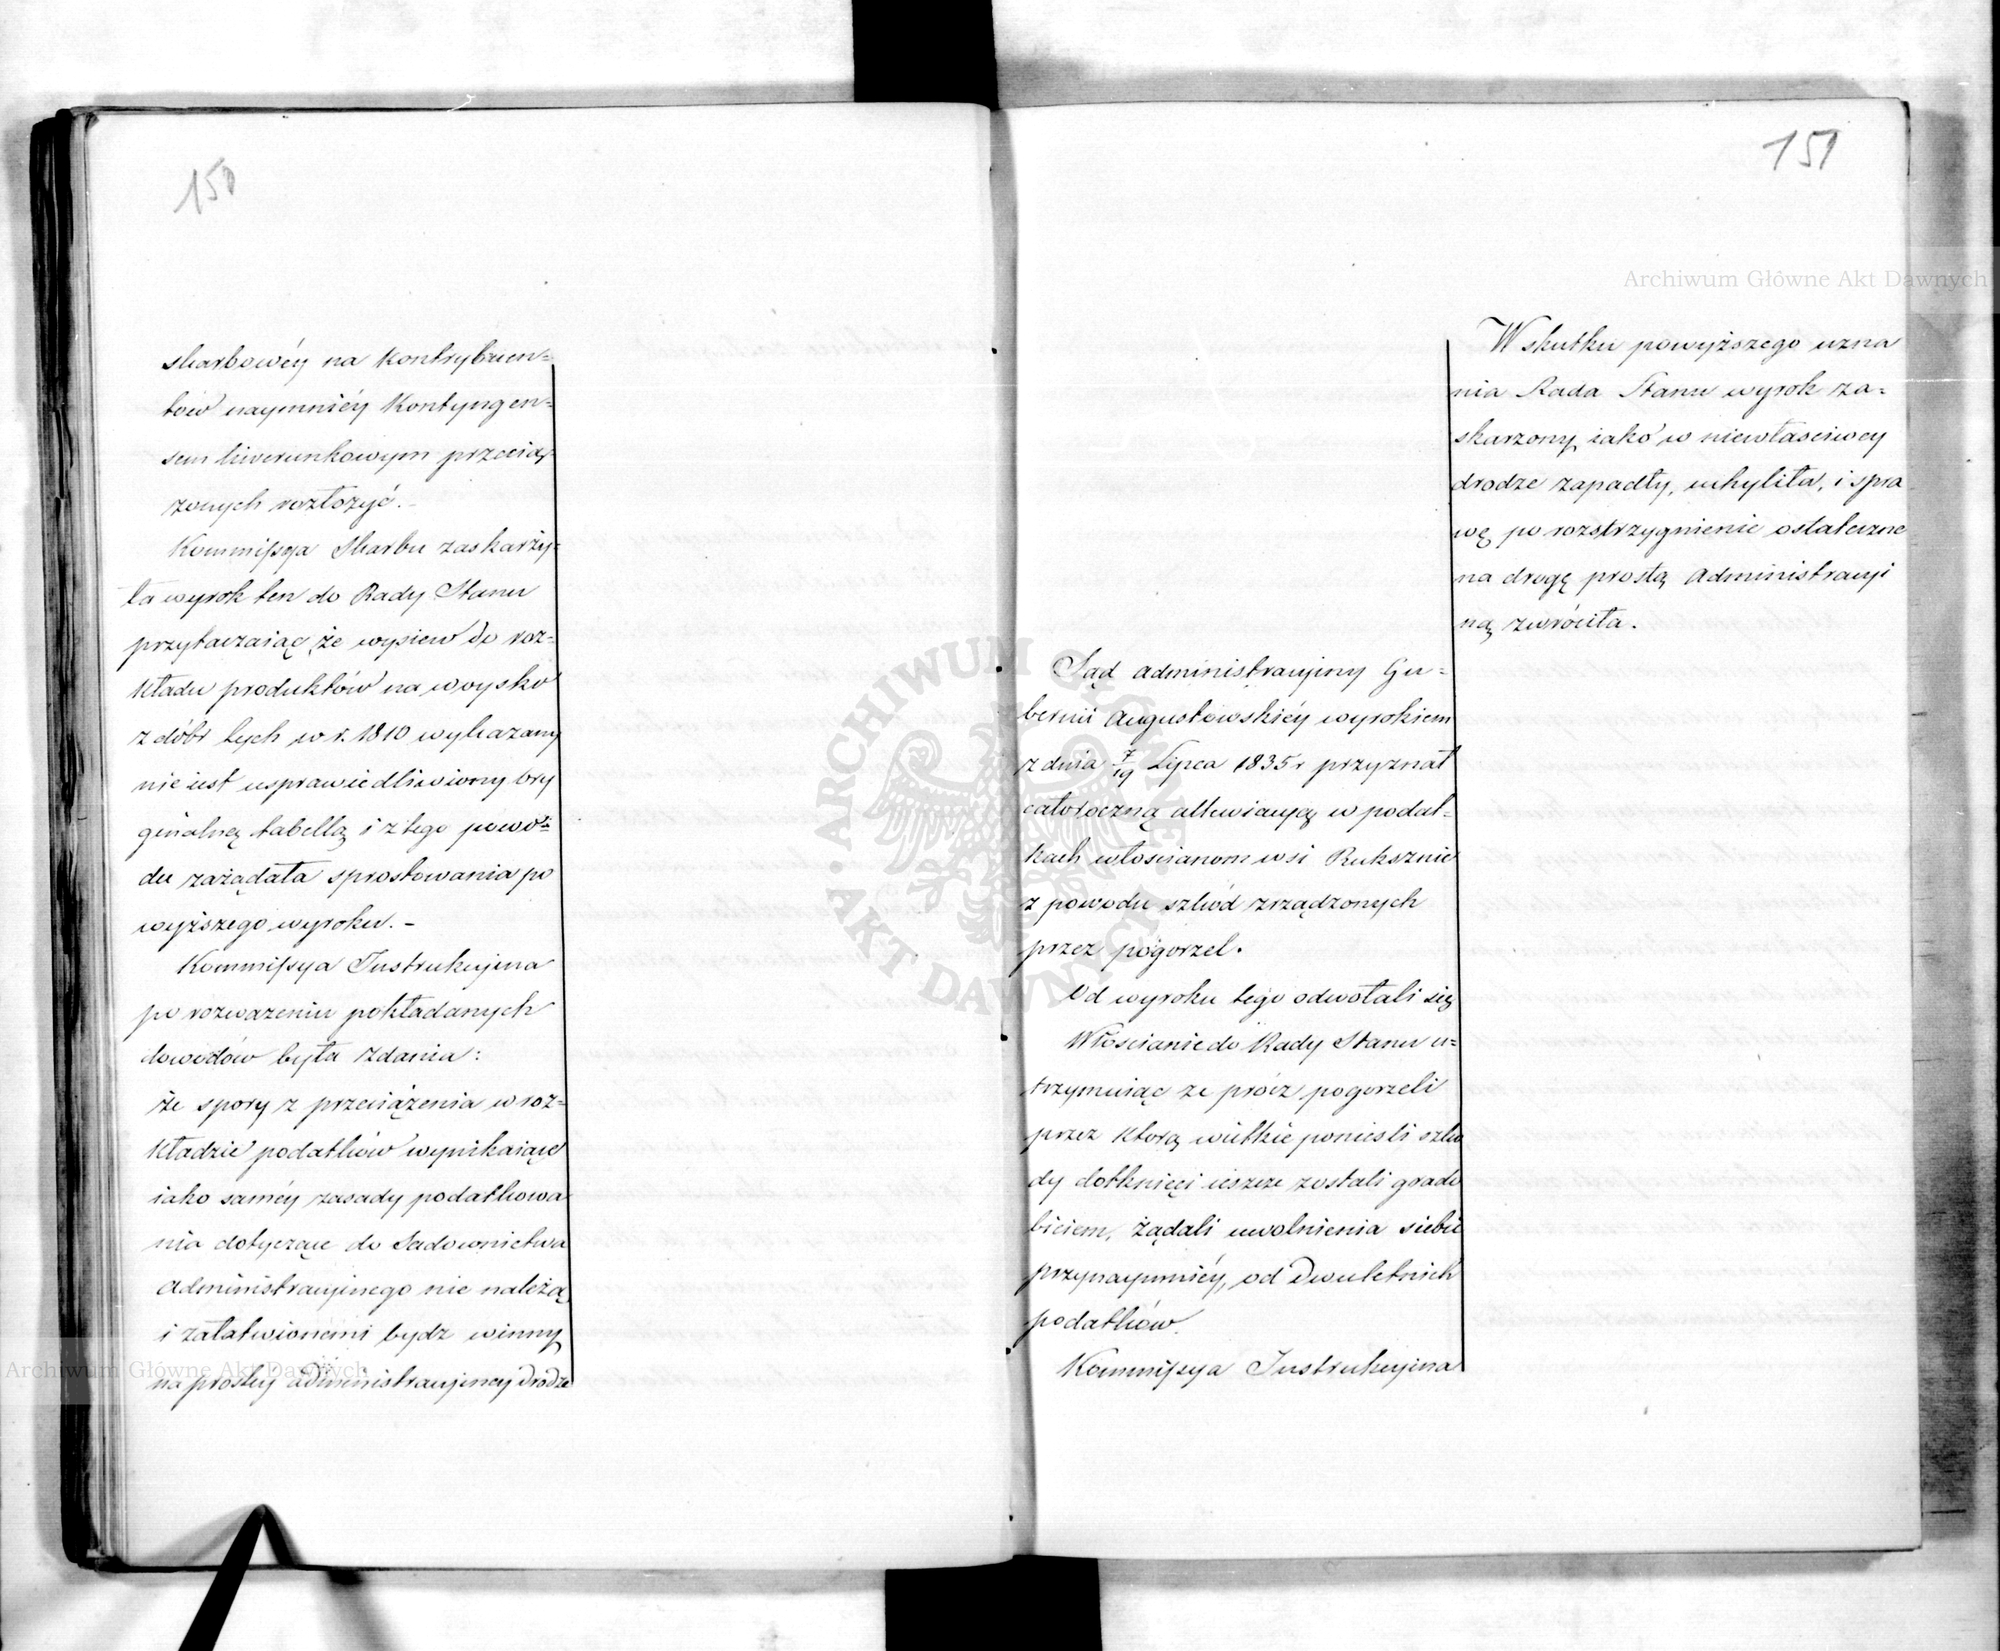 150
skarbowéy na kontrybuen=
tów naymniéy Kontyngen=
sem liwerunkowym przeciąż
zonych rozłożyć. -
Kommissya Skarbu zaskarży=
ła wyrok ten do Rady Stanu
przytaczaiąc że wysiew do roz=
kładu produktów na woysko
z dóbr tych w r. 1810 wykazany
nie iest usprawiedliwiony ory
ginalną tabellą i z tego powo=
du zażądała sprostowania po
wyższego wyroku. -
Kommissya Instrukcyina
po rozważeniu pokładanych
dowodów była zdania:
że spory z przeciążenia w roz=
kładzie podatków wynikaiące
iako saméy zasady podatkowa
nia dotyczące do Sadownictwa
administracyinego nie należą
i załatwionemi bydz winny
na prostey administracyiney drodze
151
W skutku powyższego uzna
nia Rada Stanu wyrok za=
skarzony iako w niewłasciwey
drodze zapadły, uchyliła, i spra
wę po rozstrzygnienie ostateczne
na drogę prostą administracyi
ną zwróciła.
Sąd administracyiny Gu=
bernii Augustowskiéy wyrokiem
z dnia 7/19 Lipca 1835 r przyznał
całoroczną allewiacyą w podat=
kach włoscianom wsi Ruksznie
z powodu szkód zrządzonych
przez pogorzel.
Od wyroku tego odwołali się
Włościanie do Rady Stanu u=
trzymuiąc ze prócz pogorzeli
przez którą wielkie ponieśli szko
dy dotknięci ieszcze zostali grado
biciem, żądali uwolnienia siebie
przynaymniéy, od dwuletnich
podatków.
Kommissya Instrukcyina
Archiwum Główne Akt Dawnych
Archiwum Główne Akt Dawnych
ARCHIWUM GŁÓWNE AKT DAWNYCH